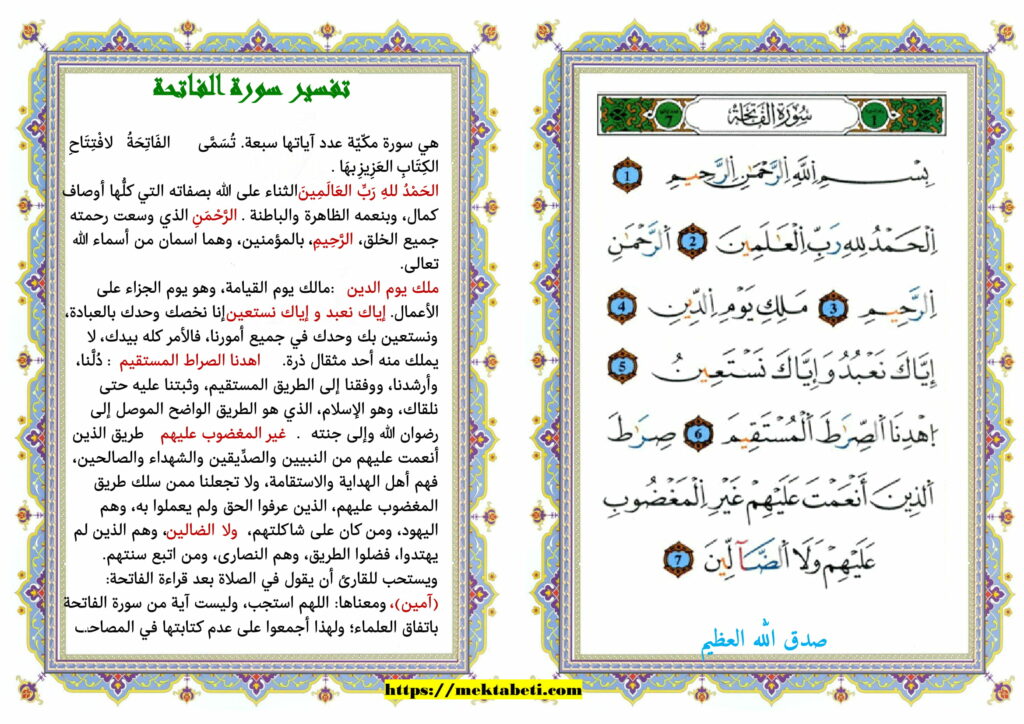 سُورَةُ الفَاتِحَة
1
7
بِسْمِ اِللَّهِ اِلرَّحْمَٰنِ اِلرَّحِيمِ 1
اِلْحَمْدُ لِلهِ رَبِّ اِلْعَٰلَمِينَ 2 اَلرَّحْمَٰنِ
اِلرَّحِيمِ 3 مَلِكِ يَوْمِ اِلدِّينِ 4
إِيَّاكَ نَعْبُدُ وَإِيَّاكَ نَسْتَعِينُ 5
اِهْدِنَا اَلصِّرَٰطَ اَلْمُسْتَقِيمَ 6 صِرَٰطَ
اَلذِينَ أَنْعَمْتَ عَلَيْهِمْ غَيْرِ اِلْمَغْضُوبِ
عَلَيْهِمْ وَلَا اَلضَّآلِّينَ 7
صدق الله العظيم
تفسير سورة الفاتحة
هي سورة مكّيّة عدد آياتها سبعة. تُسَمَّى الفَاتِحَةُ لافْتِتَاحِ
الكِتَابِ العَزِيزِ بهَا .
الحَمْدُ للهِ رَبِّ العَالَمِينَ الثناء على الله بصفاته التي كلُّها أوصاف
كمال، وبنعمه الظاهرة والباطنة . الرَّحْمَنِ الذي وسعت رحمته
جميع الخلق، الرَّحِيمِ، بالمؤمنين، وهما اسمان من أسماء الله
تعالى.
ملك يوم الدين :مالك يوم القيامة، وهو يوم الجزاء على
الأعمال. إياك نعبد و إياك نستعين إنا نخصك وحدك بالعبادة،
ونستعين بك وحدك في جميع أمورنا، فالأمر كله بيدك، لا
يملك منه أحد مثقال ذرة. اهدنا الصراط المستقيم : دُلَّنا،
وأرشدنا، ووفقنا إلى الطريق المستقيم، وثبتنا عليه حتى
نلقاك، وهو الإسلام، الذي هو الطريق الواضح الموصل إلى
رضوان الله وإلى جنته . غير المغضوب عليهم طريق الذين
أنعمت عليهم من النبيين والصدِّيقين والشهداء والصالحين،
فهم أهل الهداية والاستقامة، ولا تجعلنا ممن سلك طريق
المغضوب عليهم، الذين عرفوا الحق ولم يعملوا به، وهم
اليهود، ومن كان على شاكلتهم، ولا الضالين، وهم الذين لم
يهتدوا، فضلوا الطريق، وهم النصارى، ومن اتبع سنتهم.
ويستحب للقارئ أن يقول في الصلاة بعد قراءة الفاتحة:
(آمين)، ومعناها: اللهم استجب، وليست آية من سورة الفاتحة
باتفاق العلماء؛ ولهذا أجمعوا على عدم كتابتها في المصاحف
https://mektabeti.com